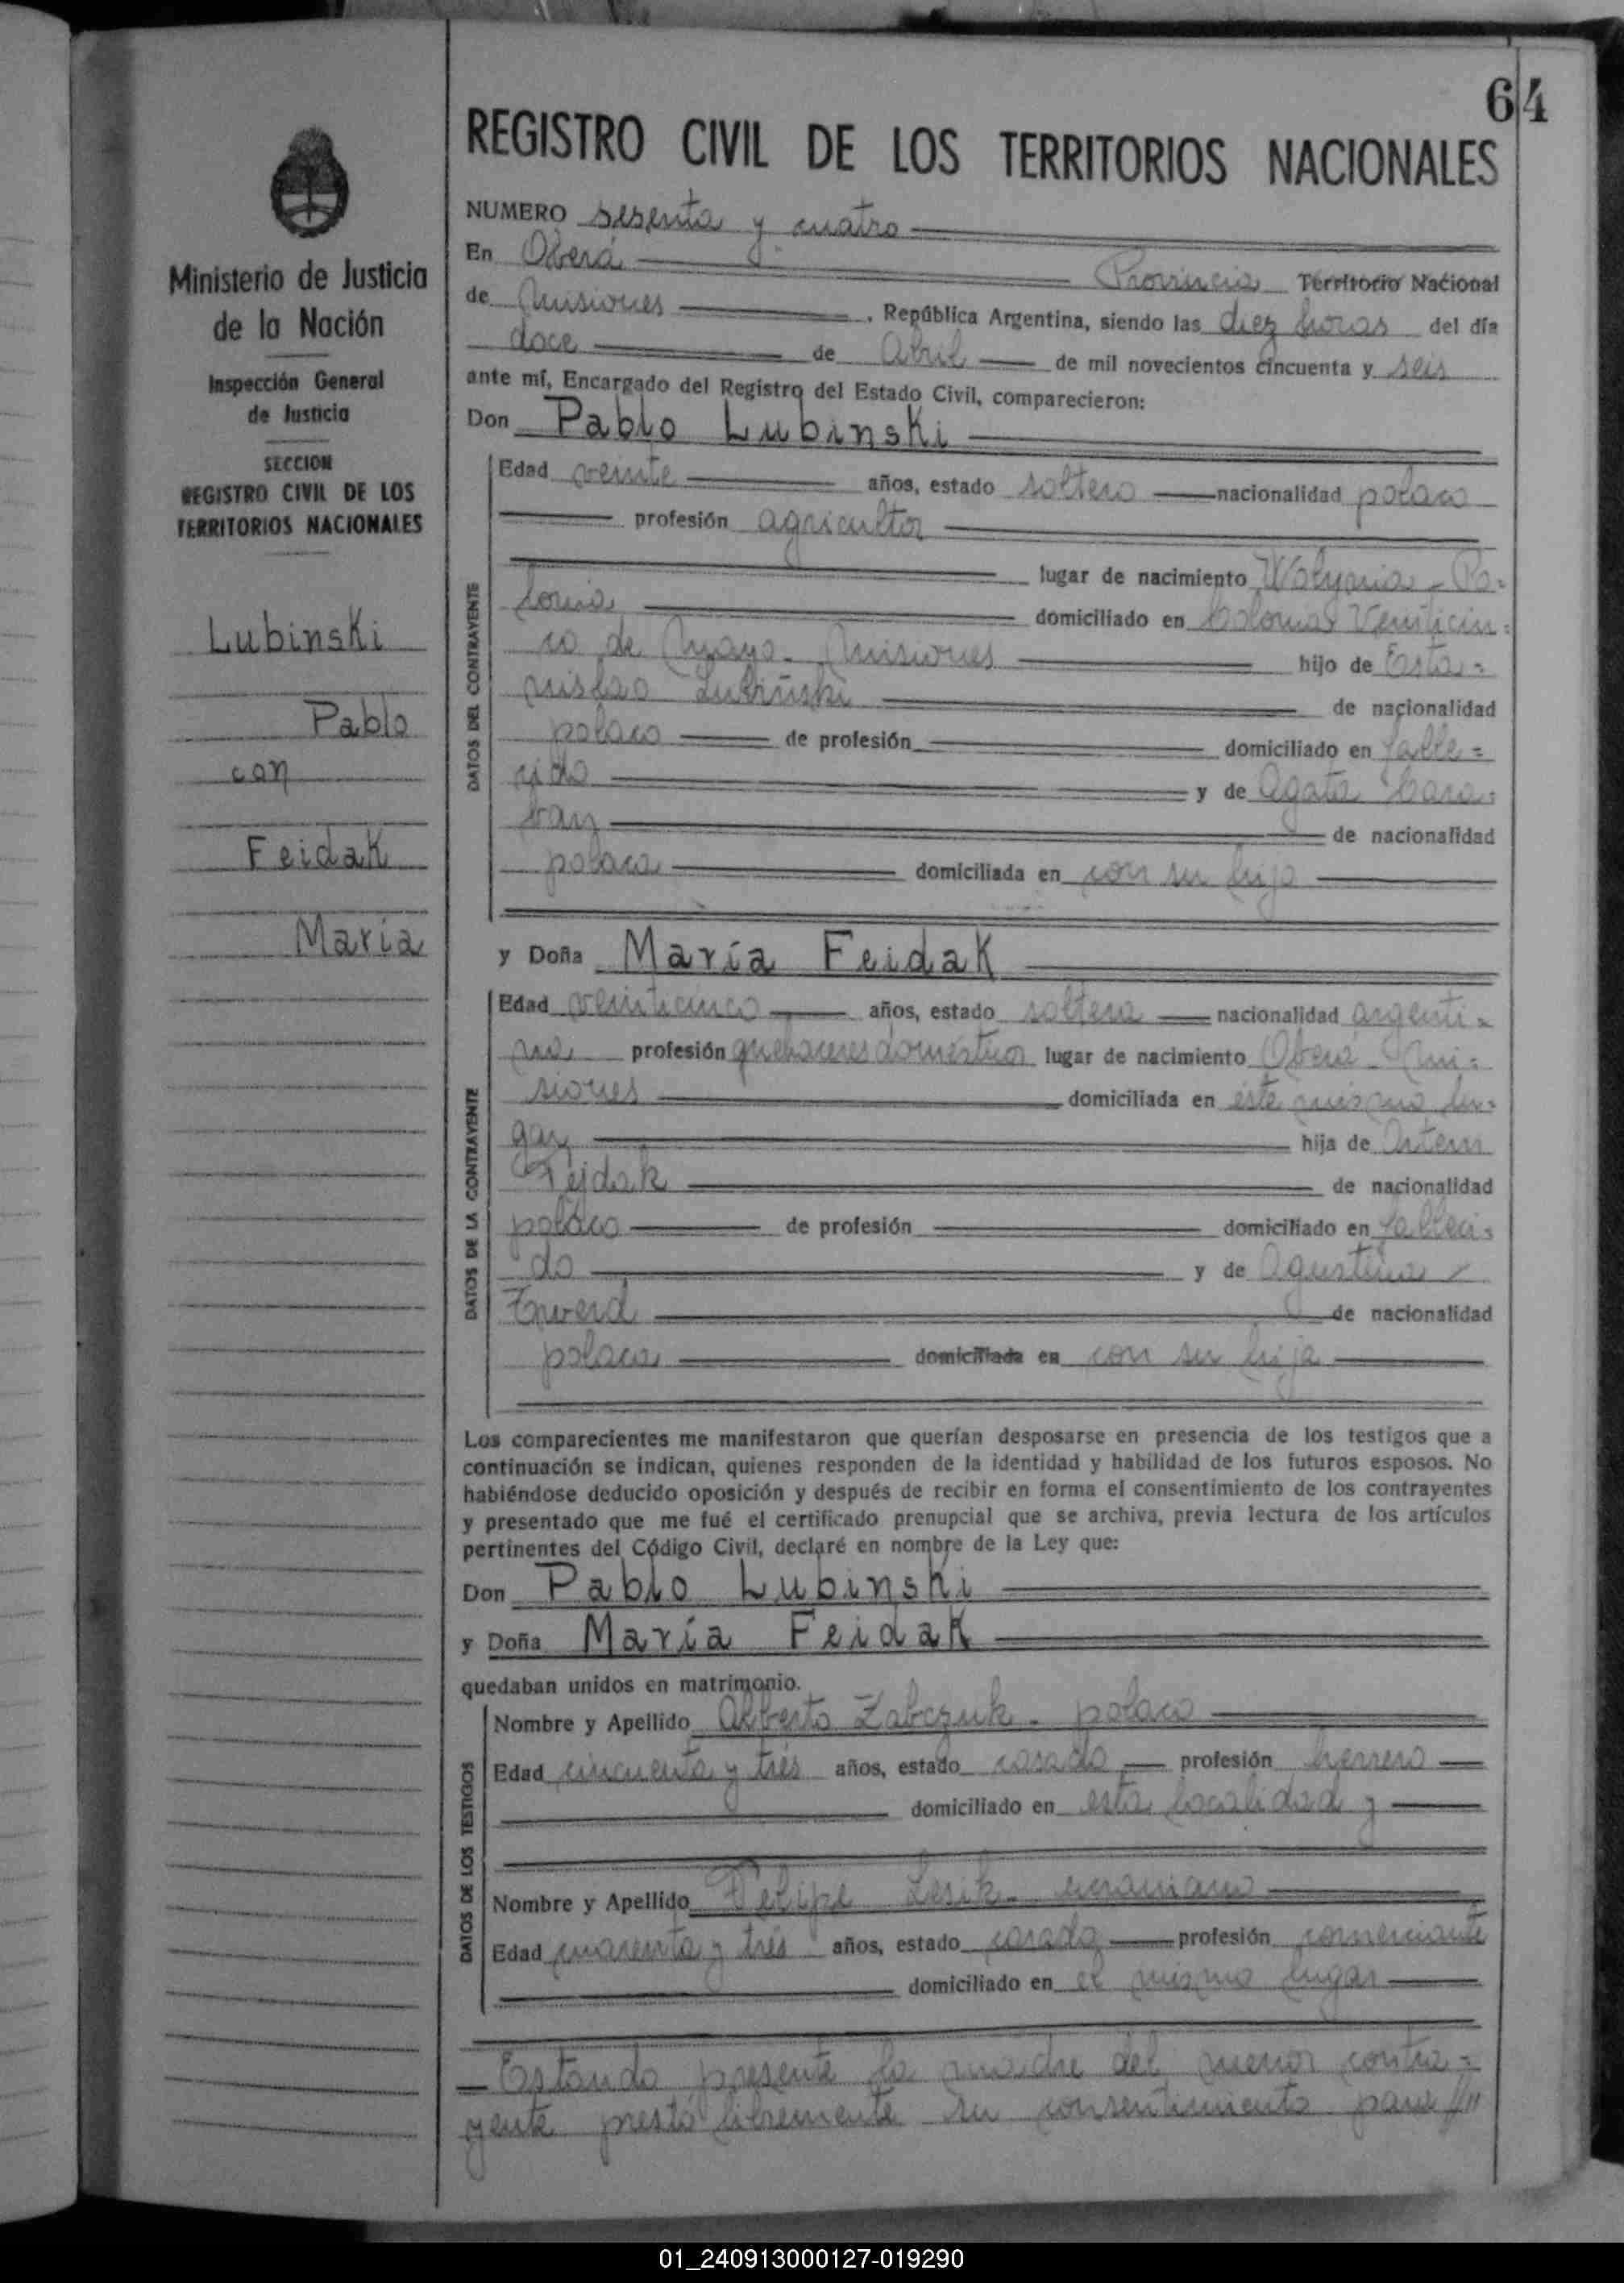 64
REGISTRO CIVIL DE LOS TERRITORIOS NACIONALES
Ministerio de Justicia
de la Nación
Inspección General
de Justicia
SECCION
REGISTRO CIVIL DE LOS
TERRITORIOS NACIONALES
Lubinski
Pablo
con
Feidak
María
NUMERO sesenta y cuatro
En Oberá Provincia Territorio Nacional
de Misiones , República Argentina, siendo las diez horas del día
doce de Abril de mil novecientos cincuenta y seis
ante mí, Encargado del Registro del Estado Civil, comparecieron:
Don Pablo Lubinski
DATOS DEL CONTRAYENTE
Edad veinte años, estado soltero nacionalidad polaco
profesión agricultor
lugar de nacimiento Wolynia - Po-
lonia domiciliado en Colonia Veinticin-
co de Mayo - Misiones hijo de Esta-
nislao Lubiński de nacionalidad
polaco de profesión domiciliado en falle-
cido y de Agata
de nacionalidad
polaca domiciliada en con su hijo
y Doña María Feidak
DATOS DE LA CONTRAYENTE
Edad veinticinco años, estado soltera nacionalidad argenti-
na profesión quehaceres domésticos lugar de nacimiento Oberá - Mi-
siones domiciliada en éste mismo lu-
gar hija de Artem
Fejdak de nacionalidad
polaco de profesión domiciliado en falleci-
do y de Agustina
de nacionalidad
polaca domiciliada en con su hija
Los comparecientes me manifestaron que querían desposarse en presencia de los testigos que a
continuación se indican, quienes responden de la identidad y habilidad de los futuros esposos. No
habiéndose deducido oposición y después de recibir en forma el consentimiento de los contrayentes
y presentado que me fué el certificado prenupcial que se archiva, previa lectura de los artículos
pertinentes del Código Civil, declaré en nombre de la Ley que:
Don Pablo Lubinski
y Doña María Feidak
quedaban unidos en matrimonio.
DATOS DE LOS TESTIGOS
Nombre y Apellido Alberto Zabczuk - polaco
Edad cincuenta y tres años, estado casado profesión herrero
domiciliado en esta localidad y
Nombre y Apellido Felipe Lesik - ucraniano
Edad cuarenta y tres años, estado casado profesión comerciante
domiciliado en el mismo lugar
Estando presente la madre del menor contra-
yente prestó libremente su consentimiento para ///
01_240913000127-019290